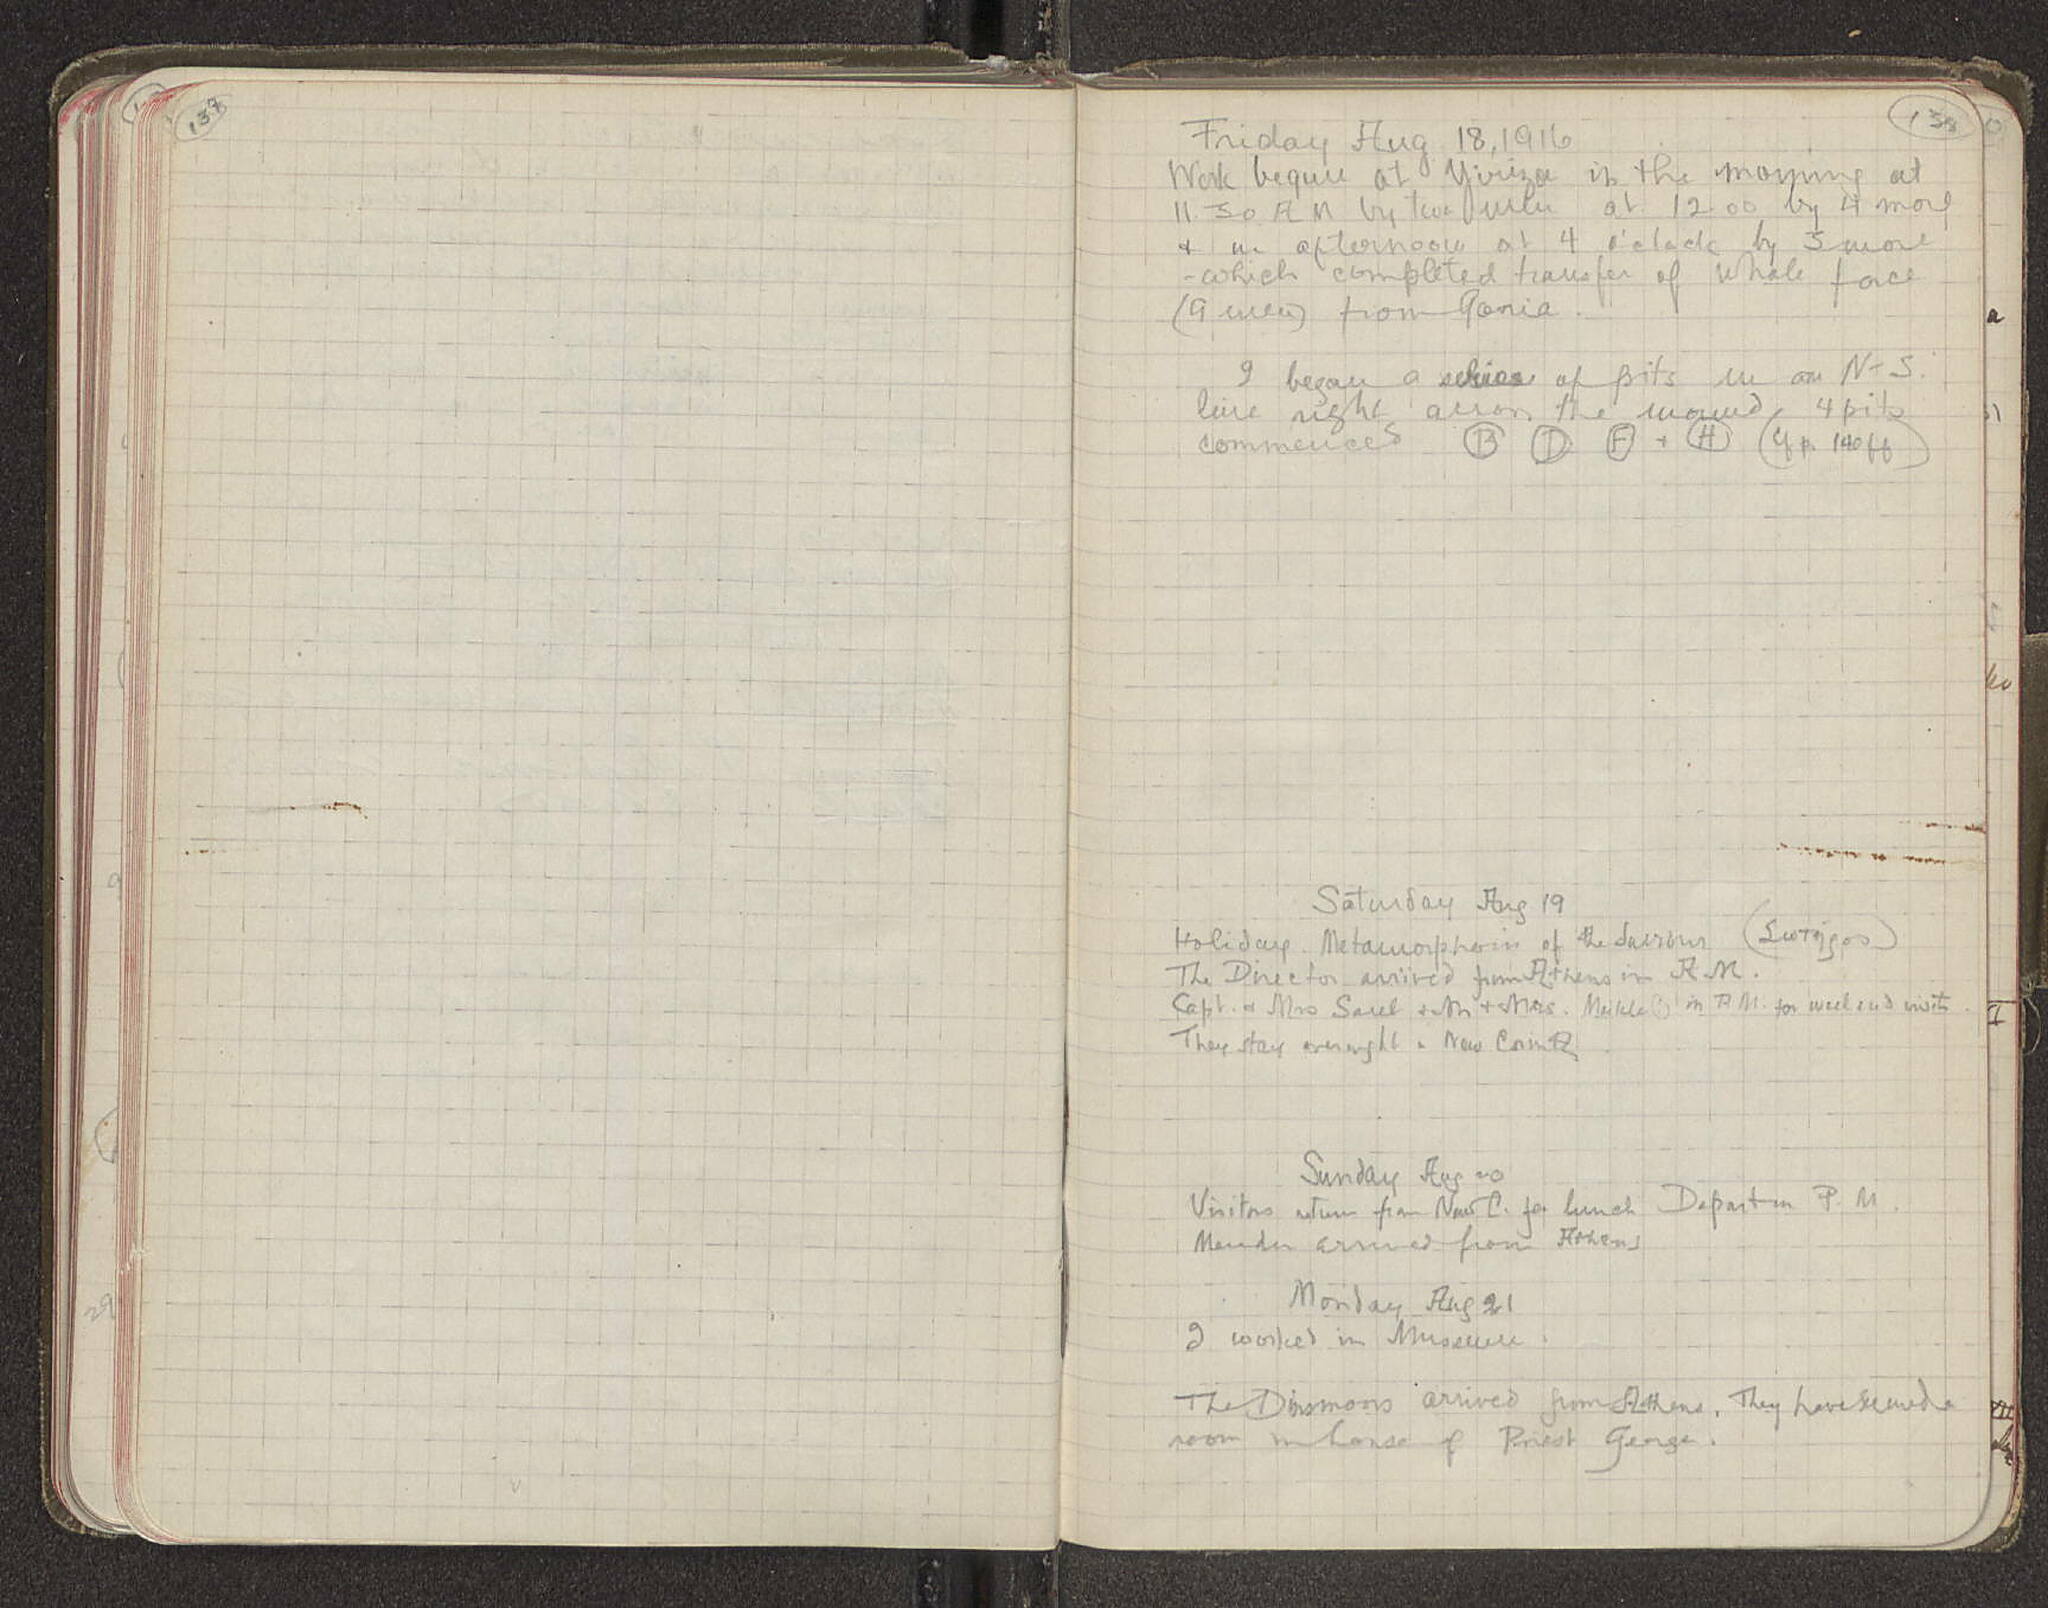 137
138
Friday Aug 18, 1916
Work begun at Yiriza in the morning at
11.30 A M by two men at 12.00 by 4 more
+ in afternoon at 4 o'clock by 3 more
- which completed transfer of whole force
(9 men) from Gonia.
I began a series of pits in an N-S.
line right across the mound 4 pits
commenced B D F + H (cf p. 140 ff)
Saturday Aug 19
Holiday. Metamorphosis of the Saviour (Σωτῆρος)
The Director arrived from Athens in A.M.
Capt. & Mrs + Mr + Mrs. (?) in P.M. for week end visit.
They stay overnight New Corinth
Sunday Aug 20
Visitors return from New C. for lunch Depart in P. M.
arrived from Athens
Monday Aug 21
I worked in Museum.
The Dinsmoors arrived from Athens. They have secured a
room in house of Priest George.
29